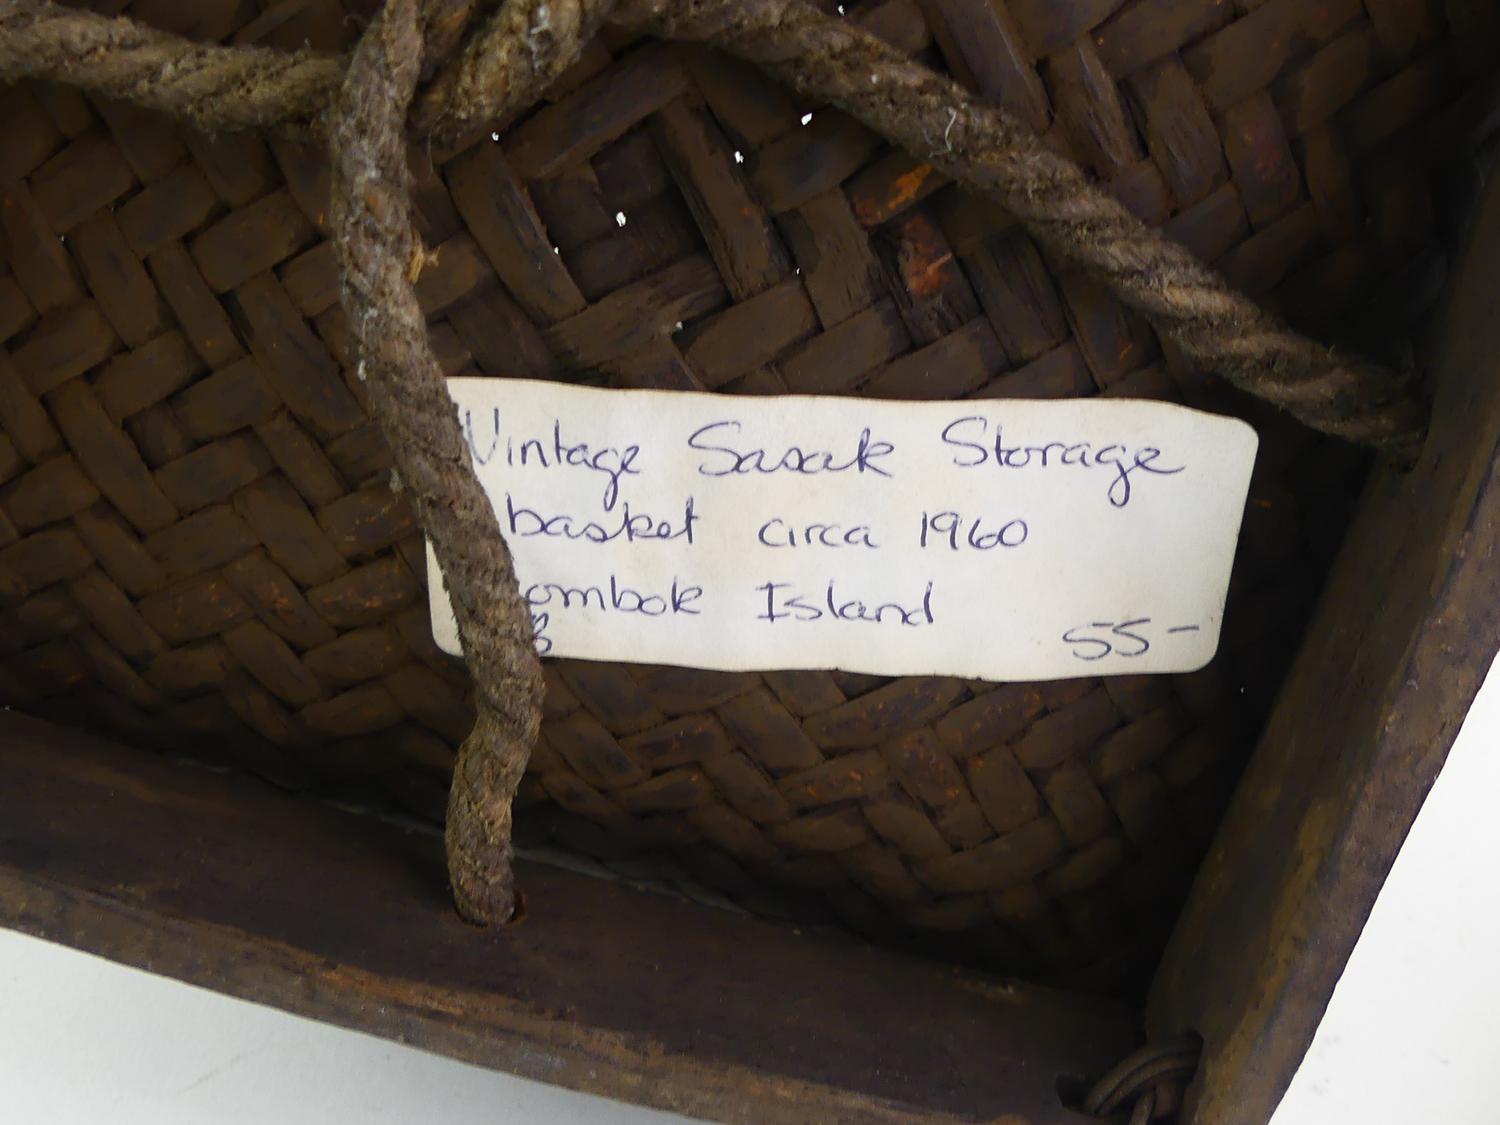 Vintage Sasak Storage
basket circa 1960
ombok Island
55-